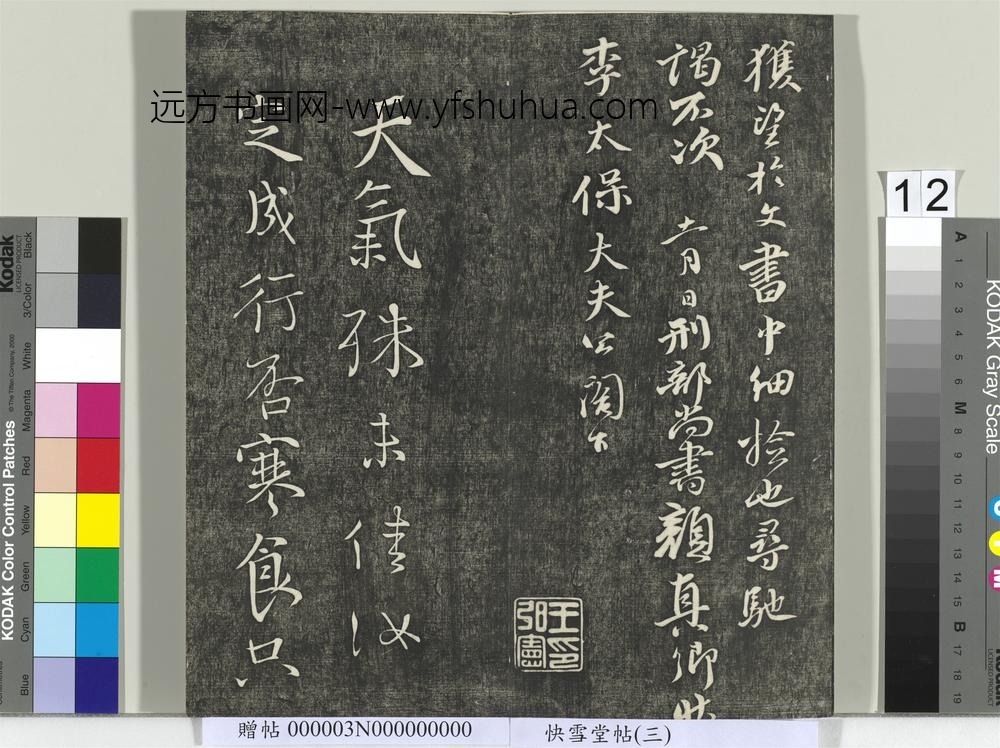 獲望於文書中細撿也尋馳
謁不次 十一月日刑部尚書顏真卿狀
李太保大夫公閣下
天氣殊未佳汝
定成行否寒食只
远方书画网-www.yfshuhua.com
贈帖 000003N000000000
快雪堂帖(三)
12
Kodak
LICENSED PRODUCT
KODAK Color Control Patches
© The Tiffen Company, 2000
Blue
Cyan
Green
Yellow
Red
Magenta
White
3/Color
Black
KODAK Gray Scale
A 1 2 3 4 5 6 M 8 9 10 11 12 13 14 15 B 17 18 19